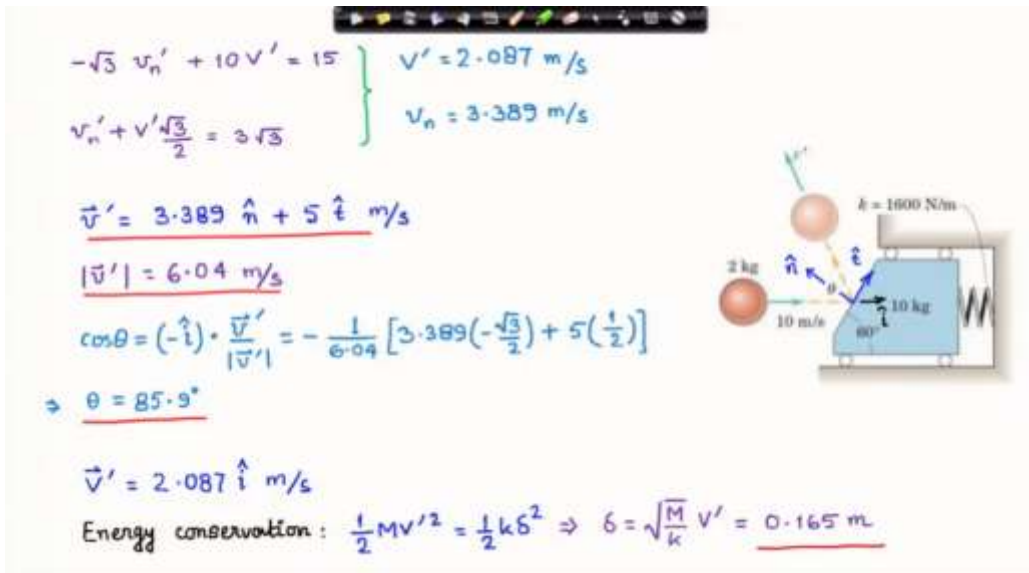 -√3 vₙ′ + 10 V′ = 15
V′ = 2.087 m/s
vₙ′ + V′ √3/2 = 3√3
vₙ = 3.389 m/s
v⃗′ = 3.389 n̂ + 5 t̂ m/s
|v⃗′| = 6.04 m/s
cosθ = (-î) · v⃗′/|v⃗′| = - 1/6.04 [3.389(-√3/2) + 5(1/2)]
⇒ θ = 85.9°
V⃗′ = 2.087 î m/s
Energy conservation : 1/2 MV′² = 1/2 kδ² ⇒ δ = √(M/k) V′ = 0.165 m
v′
k = 1600 N/m
2 kg
n̂
t̂
θ
10 kg
î
10 m/s
60°